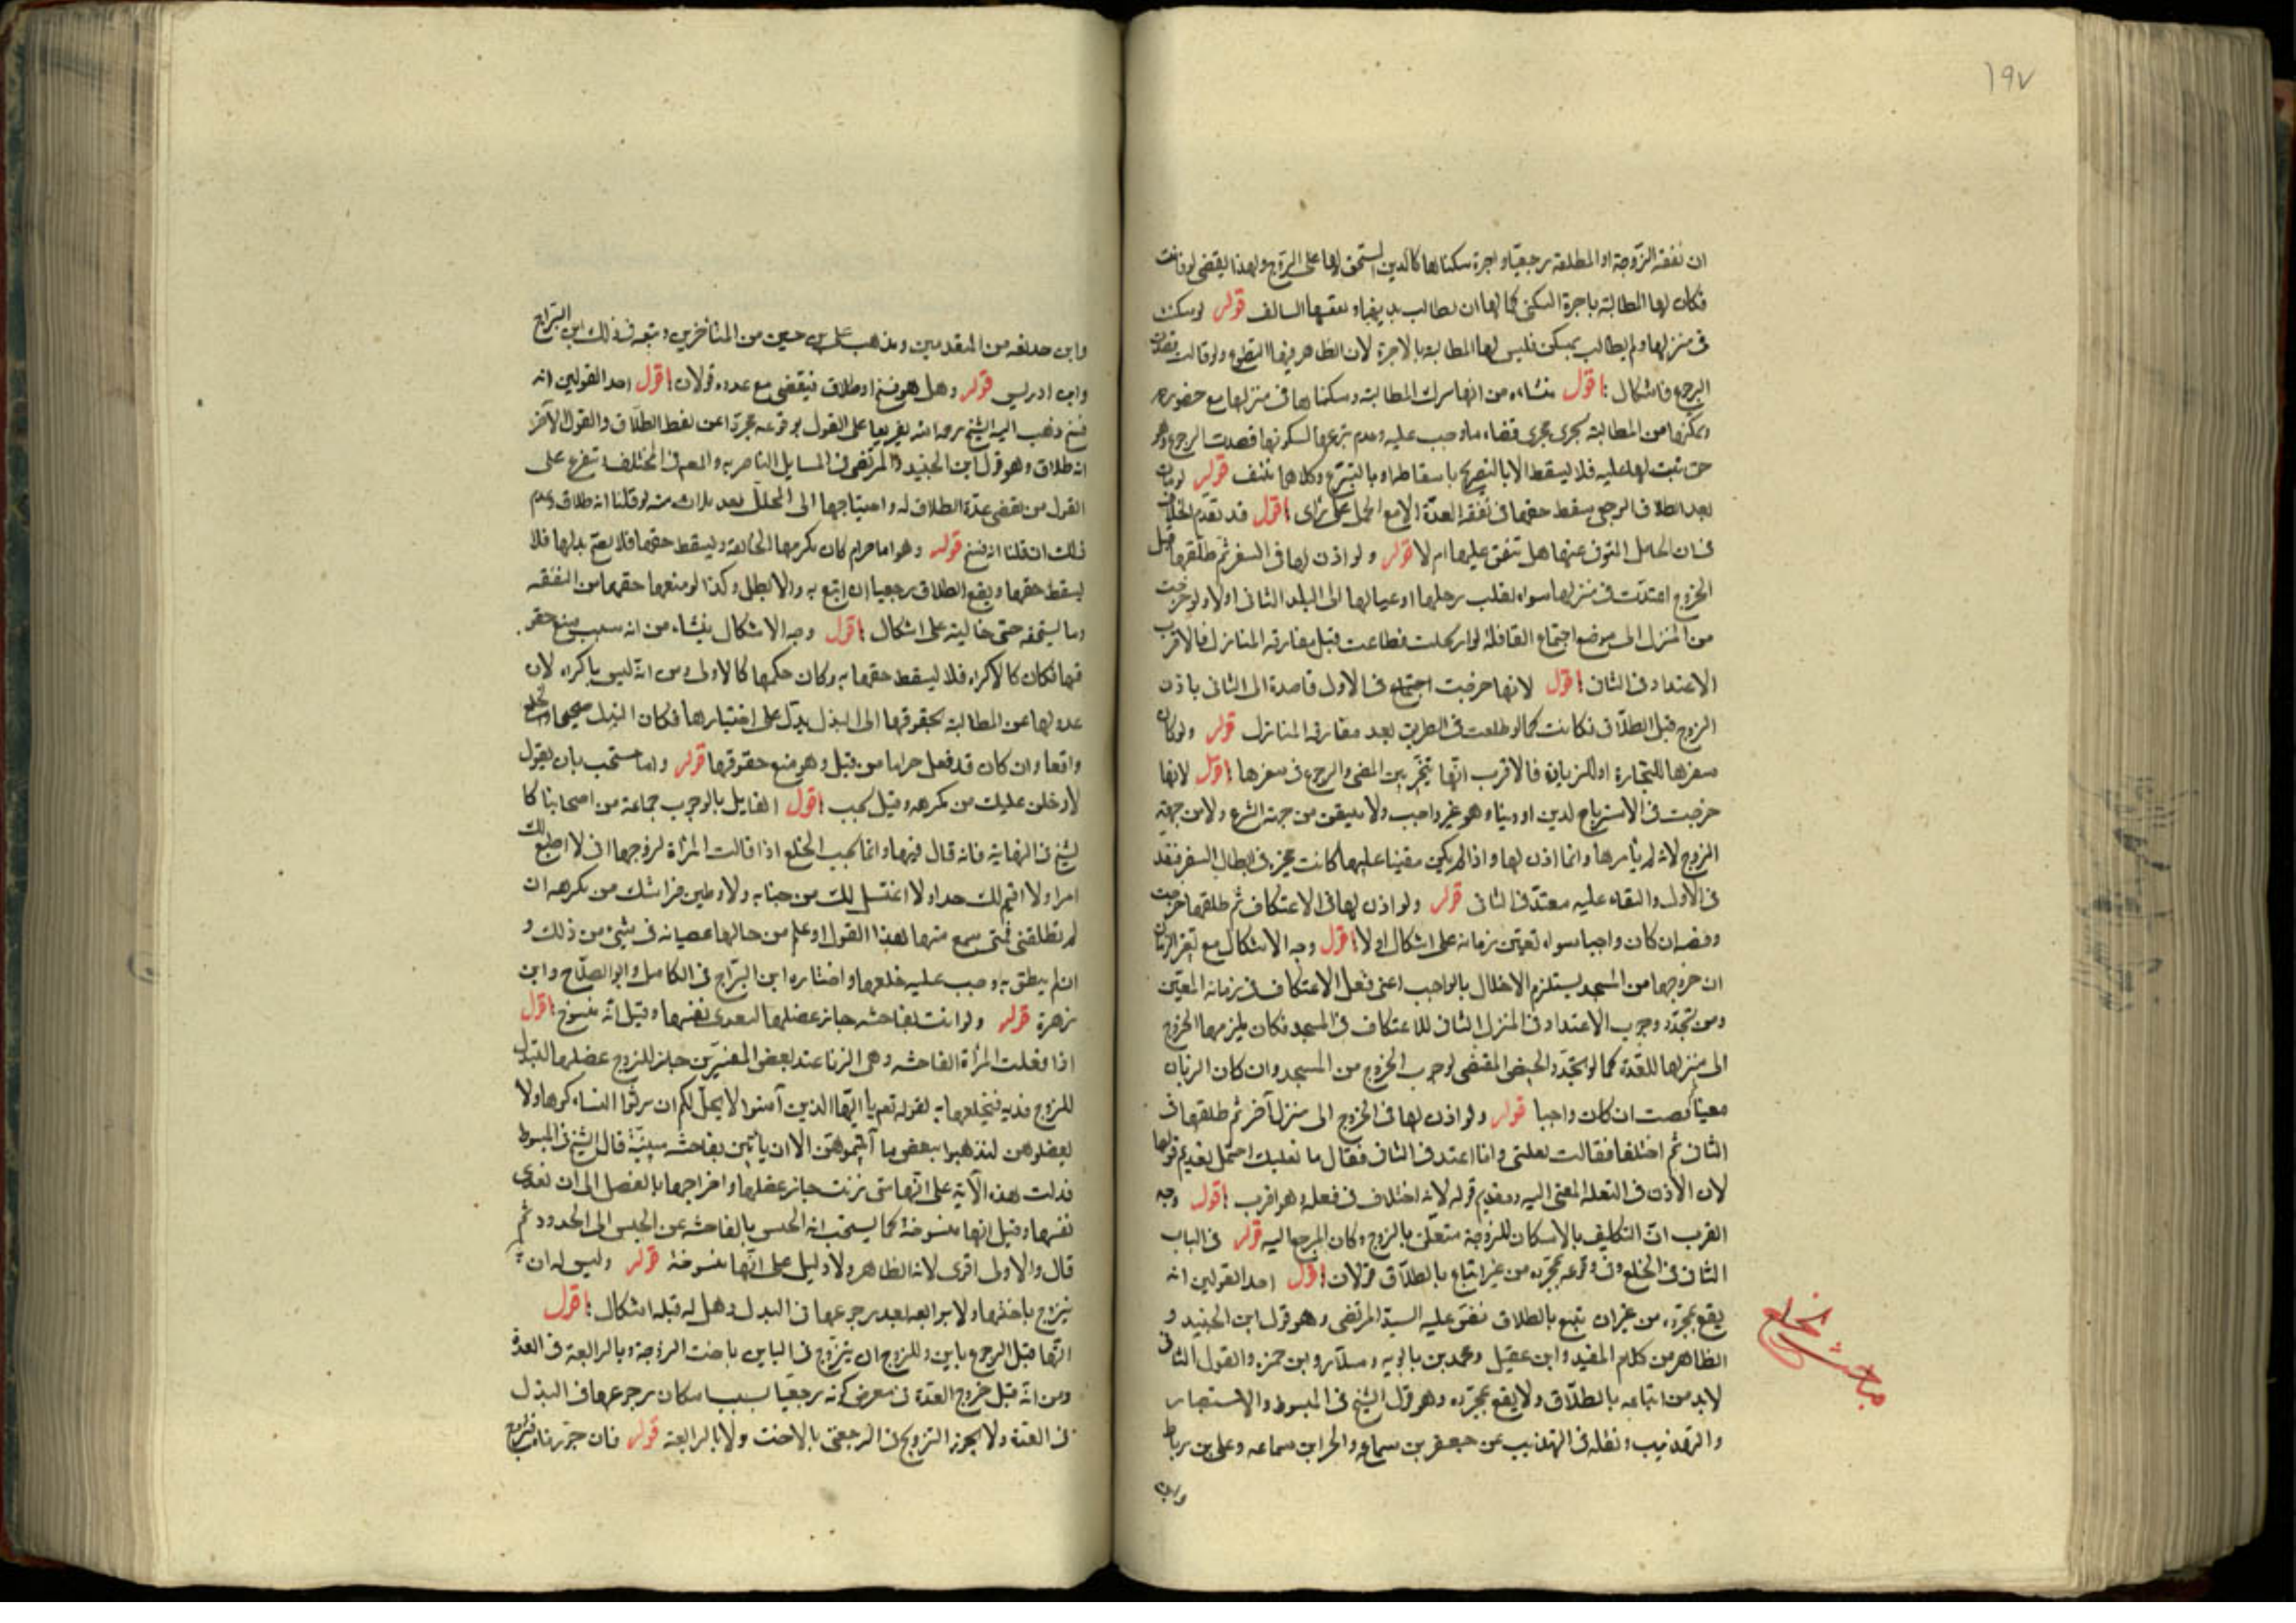 ١٩٧
ان نفقة الزوجة او المطلقة رجعيا واجرة سكناها كالدين المستحق لها على الزوج ولهذا يقضى لو فاتت
فكان لها المطالبة باجرة السكنى كما لها ان تطالب بدينها ونفقتها السالف قوله لو سكنت
فى منزلها ولم يطالب بمسكن فليس لها المطالبة بالاجرة لان الظاهر منها التطوع ولو قالت قصدت
الرجوع فاشكال اقول منشاءه من انها تترك المطالبة وسكناها فى منزلها مع حضوره
وتمكنها من المطالبة يجرى مجرى قضاء ما وجب عليه وعدم تبرعها لسكونها قصدت الرجوع وهو
حق ثبت لها عليه فلا يسقط الا بالتصريح باسقاطه او بالتبرع وكلاهما منتف قوله لو مات
بعد الطلاق الرجعى سقط حقها فى نفقة العدة الا مع الحمل على راى اقول قد تقدم الخلاف
فى ان الحامل المتوفى عنها هل تنفق عليها ام لا قوله ولو اذن لها فى السفر ثم طلقها قبل
الخروج اعتدت فى منزلها سواء نقلت رحلها او عيالها الى البلد الثانى اولا ولو خرجت
من المنزل الى موضع اجتماع القافلة او ارتحلت فطلقت قبل مفارقة المنازل فالاقرب
الاعتداد فى الثانى اقول لانها خرجت فى الاول قاصدة الى الثانى باذن
الزوج قبل الطلاق فكانت كما لو طلقت فى الطريق بعد مفارقة المنازل قوله ولو كان
سفرها للتجارة او للزيارة فالاقرب انها تتخير بين المضى والرجوع فى سفرها اقول لانها
خرجت فى الاسترباح لدين او دنيا وهو غير واجب ولا متيقن من جهة الشرع ولا من جهة
الزوج لانه لم يأمرها وانما اذن لها واذا لم يكن متعينا عليها كانت مخيرة فى ابطال السفر فتعتد
فى الاول والبقاء عليه معتد فى الثانى قوله ولو اذن لها فى الاعتكاف ثم طلقها خرجت
وقضت ان كان واجبا سواء تعين زمانه على اشكال او لا اقول وجه الاشكال مع تعين الزمان
ان خروجها من المسجد يستلزم الاخلال بالواجب اعنى فعل الاعتكاف فى زمانه المعين
ومن تجدد وجوب الاعتداد فى المنزل الثانى للاعتكاف فى المسجد فكان يلزمها الخروج
الى منزلها للعدة كما لو تجدد الحيض المقتضى لوجوب الخروج من المسجد وان كان الزمان
معينا قضت ان كان واجبا قوله ولو اذن لها فى الخروج الى منزل آخر ثم طلقها فى
الثانى ثم اختلفا فقالت نقلتنى وانا اعتد فى الثانى فقال ما نقلتك احتمل تقديم قولها
لان الاذن فى النقلة المضى اليه وتقديم قوله لانه اختلاف فى فعله وهو اقرب اقول وجه
القرب ان التكليف بالاسكان للزوجة متعلق بالزوج وكان المرجع اليه قوله فى الباب
الثانى فى الخلع وفى وقوعه بمجرده من غير اتباع بالطلاق قولان اقول احد القولين انه
يقع بمجرده من غير ان يتبع بالطلاق نص عليه السيد المرتضى وهو قول ابن الجنيد و
الظاهر من كلام المفيد وابن عقيل ومحمد بن بابويه وسلار وابن حمزه والقول الثانى
لابد من اتباعه بالطلاق ولا يقع بمجرده وهو قول الشيخ فى المبسوط والاستبصار
والتهذيب ونقله فى التهذيب عن جعفر بن سماعه والحسن بن سماعه وعلى بن رباط
مباحث الخلع
وابن
وابن حذيفه من المتقدمين ومذهب على بن حسين من المتأخرين وتبعه فى ذلك ابن البراج
وابن ادريس قوله وهل هو فسخ او طلاق فينقص مع عدده قولان اقول احد القولين انه
فسخ ذهب اليه الشيخ رحمه الله تفريعا على القول بوقوعه مجردا عن لفظ الطلاق والقول الآخر
انه طلاق وهو قول ابن الجنيد والمرتضى فى المسايل الناصريه والمص فى المختلف وتفرع على
القول من نقص عدة الطلاق له واحتياجها الى المحلل بعد ثلاث منه لو قلنا انه طلاق وعدم
ذلك ان قلنا انه فسخ قوله وهو اما حرام كأن يكرهها لتخالعه ويسقط حقها فلا يصح بذلها فلا
يسقط حقها ويقع الطلاق رجعيا ان اتبع به والا بطل وكذا لو منعها حقها من النفقه
وما يستحقه حتى خالعته على اشكال اقول وجه الاشكال ينشاء من انه بسبب منع حق
فيها فكان كالاكراه فلا يسقط حقها به وكان حكمها كالاولى ومن انه ليس باكراه لان
عدولها عن المطالبة بحقوقها الى البذل يدل على اختيارها فكان البذل صحيحا والخلع
واقعا وان كان قد فعل حراما من قبل وهو منع حقوقها قوله واما مستحب بان يقول
لادخلن عليك من تكرهه وقيل يجب اقول القايل بالوجوب جماعة من اصحابنا كا
لشيخ فى النهاية فانه قال فيها وانما يجب الخلع اذا قالت المرأة لزوجها انى لا اطيع لك
امرا ولا اقيم لك حدا ولا اغتسل لك من جنابه ولاوطئن فراشك من تكرهه ان
لم تطلقنى فمتى سمع منها هذا القول او علم من حالها عصيانه فى شىء من ذلك و
ان لم ينطق به وجب عليه خلعها واختاره ابن البراج فى الكامل وابو الصلاح وابن
زهرة قوله ولو اتت بفاحشه جاز عضلها لتفدى نفسها وقيل انه منسوخ اقول
اذا فعلت المرأة الفاحشه وهى الزنا عند بعض المفسرين جاز للزوج عضلها لتبذل
للزوج فديه فيخلعها به لقوله تعم يا ايها الذين آمنوا لا يحل لكم ان ترثوا النساء كرها ولا
تعضلوهن لتذهبوا ببعض ما آتيتموهن الا ان يأتين بفاحشه مبينة قال الشيخ فى المبسوط
فدلت هذه الآية على انها متى زنت جاز عضلها واخراجها بالفضل الى ان تفدى
نفسها وقيل انها منسوخة كما نسخت اية الحبس بالفاحشه عن الحبس الى الحدود ثم
قال والاول اقوى لانه الظاهر ولا دليل على انها منسوخة قوله وليس له ان
يتزوج باختها ولا برابعه بعد رجوعها فى البذل وهل له قبله اشكال اقول
انها قبل الرجوع باين وللزوج ان يتزوج فى الباين باخت الزوجة وبالرابعة فى العدة
ومن انه قبل خروج العدة فى معرض كونه رجعيا بسبب امكان رجوعها فى البذل
فى العدة ولا يجوز التزويج فى الرجعى بالاخت ولا بالرابعة قوله فان جوزناه فتزوج